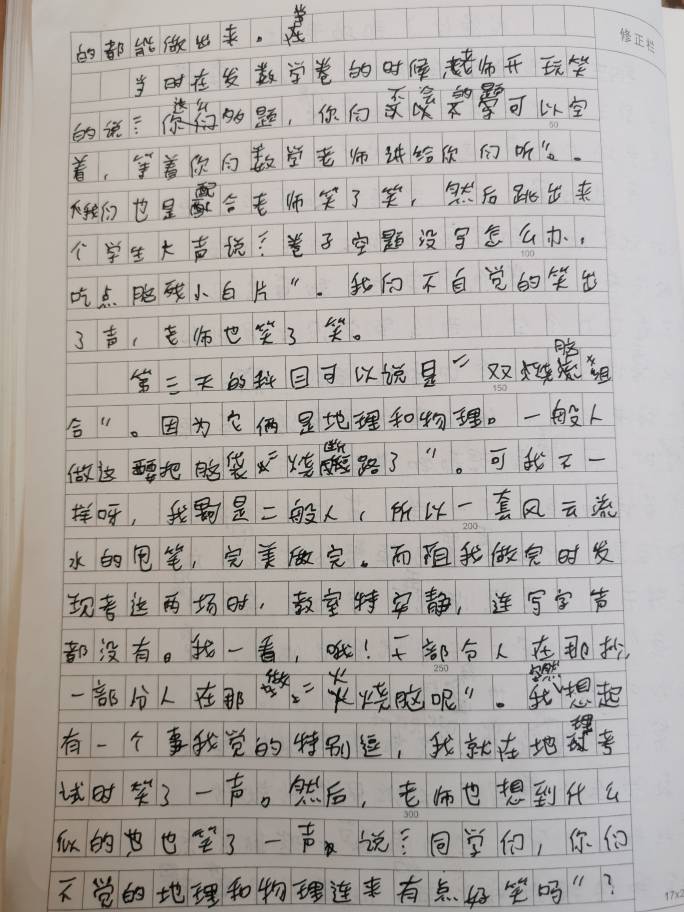 的都能做出来。当在
当时在发数学卷的时候,老师开玩笑
的说:“这么你们的题,你们不会的题可以空
着,等着你们数学老师讲给你们听”。
我们也是配合老师笑了笑,然后跳出来
个学生大声说:“卷子空题没写怎么办,
吃点脑残小白片”。我们不自觉的笑出
了声,老师也笑了笑。
第三天的科目可以说是“双烧脑组
合”。因为它俩是地理和物理。一般人
做这要把脑袋“烧断路了”。可我不一
样呀,我是二般人,所以一套风云流
水的甩笔,完美做完。而且我做完时发
现考这两场时,教室特安静,连写字声
都没有。我一看,哦!一部分人在那抄,
一部分人在那做“火烧脑呢”。我忽然想起
有一个事我觉的特别逗,我就在地理考
试时笑了一声。然后,老师也想到什么
似的也笑了一声。说:“同学们,你们
不觉的地理和物理连来有点好笑吗”?
修正栏
50
100
150
200
250
300